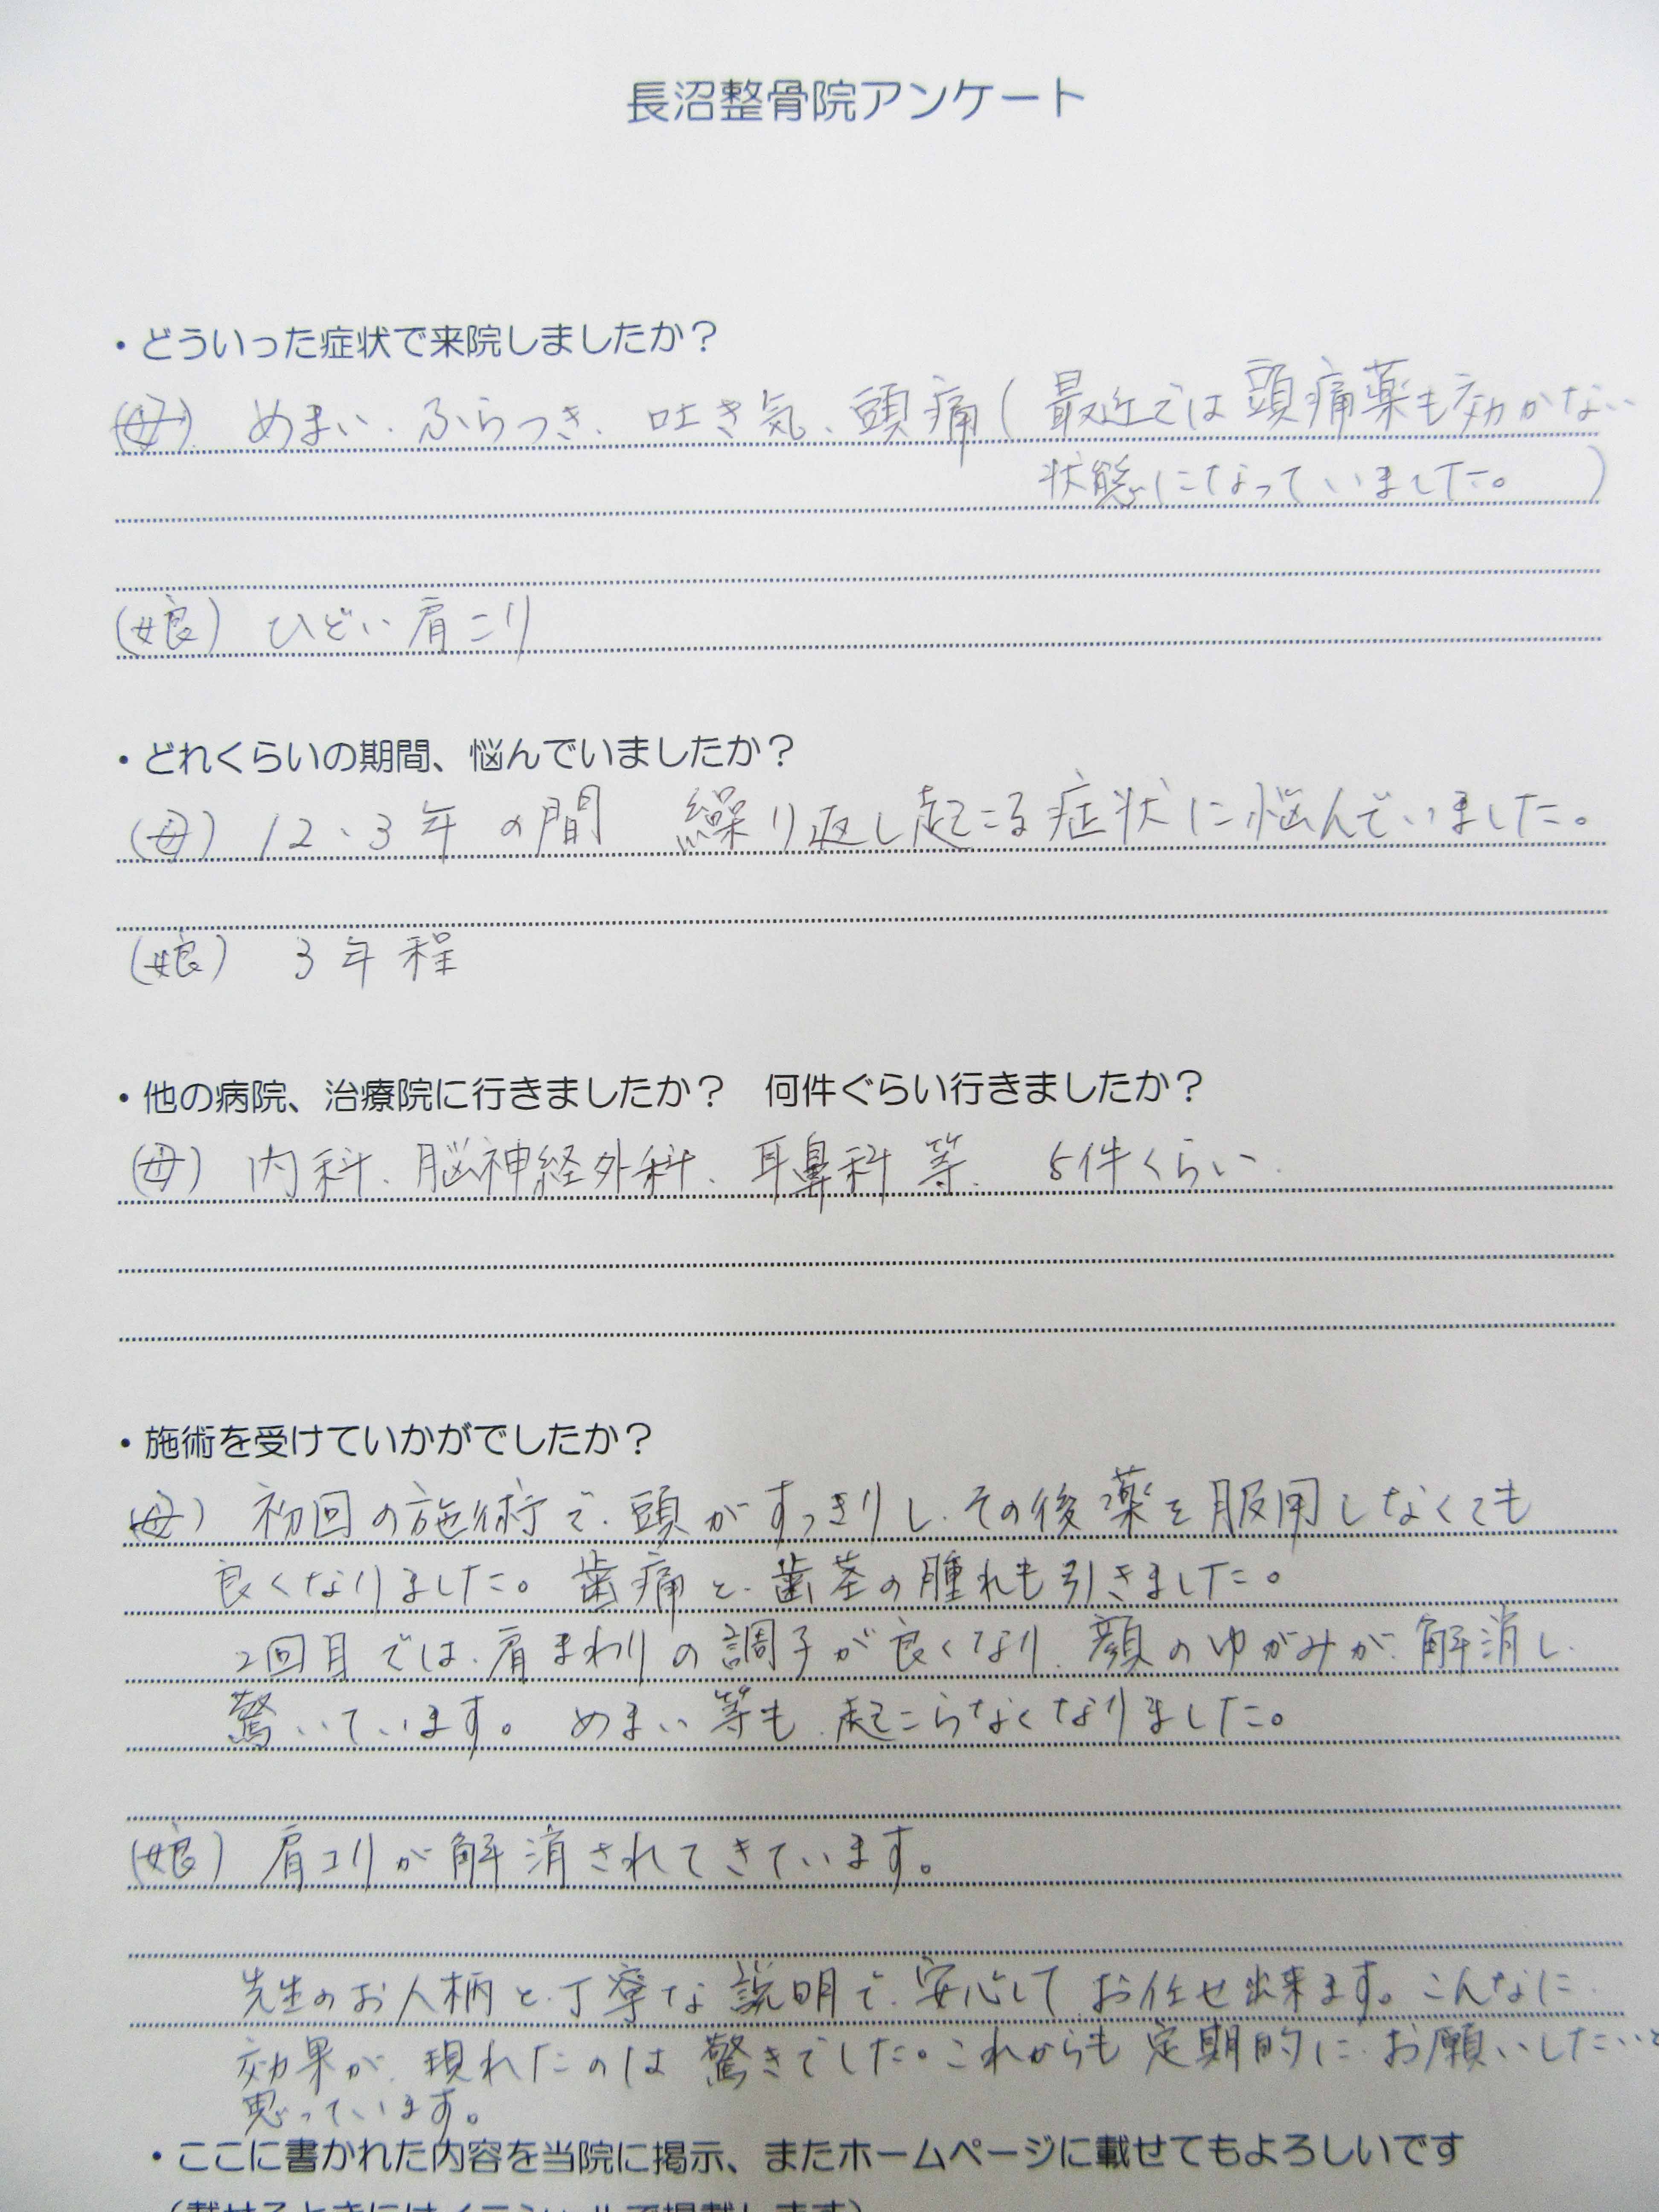 長沼整骨院アンケート
・どういった症状で来院しましたか？
(母) めまい、ふらつき、吐き気、頭痛(最近では頭痛薬も効かない
状態になっていました。)
(娘) ひどい肩こり
・どれくらいの期間、悩んでいましたか？
(母) 12、3年の間 繰り返し起こる症状に悩んでいました。
(娘) 3年程
・他の病院、治療院に行きましたか？ 何件ぐらい行きましたか？
(母) 内科、脳神経外科、耳鼻科等、 5件くらい、
・施術を受けていかがでしたか？
(母) 初回の施術で、頭がすっきりし、その後薬を服用しなくても
良くなりました。歯痛と、歯茎の腫れも引きました。
2回目では、肩まわりの調子が良くなり、顔のゆがみが、解消し、
驚いています。 めまい等も、起こらなくなりました。
(娘) 肩コリが解消されてきています。
先生のお人柄と、丁寧な説明で、安心して、お任せ出来ます。こんなに、
効果が、現れたのは驚きでした。これからも定期的に、お願いしたいと
思っています。
・ここに書かれた内容を当院に掲示、またホームページに載せてもよろしいです
（載せるときにはイニシャルで掲載します）